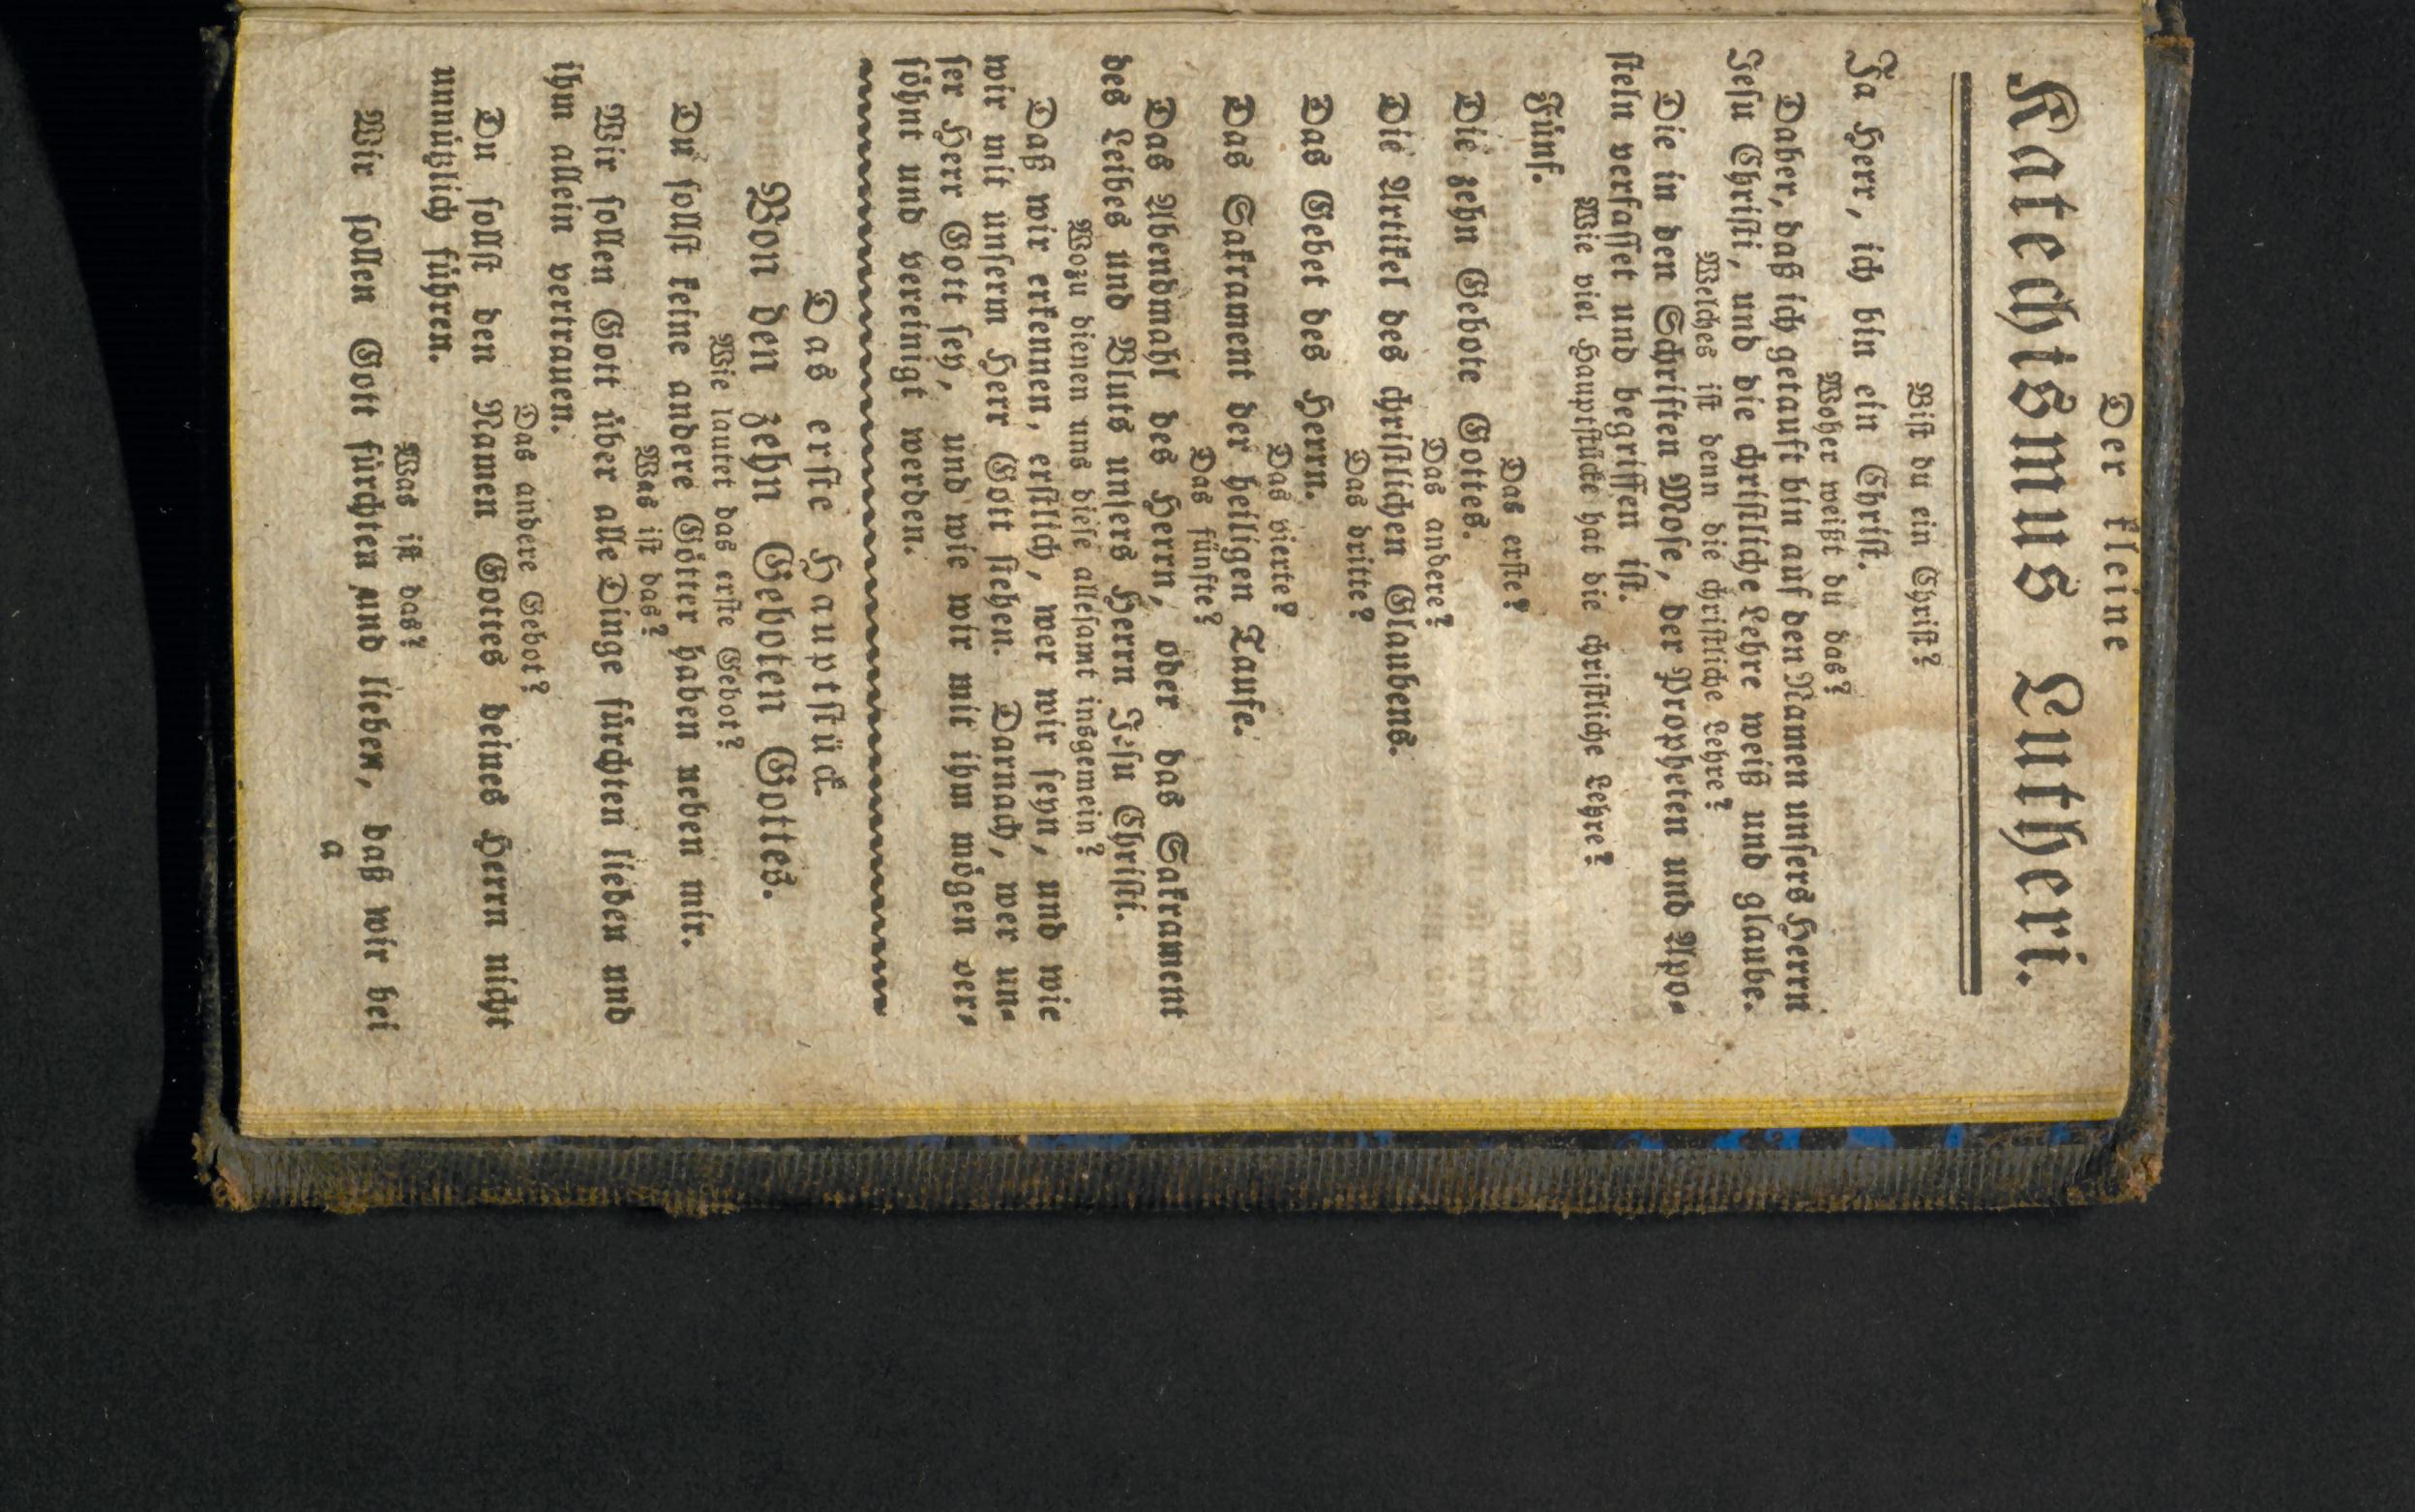 Der kleine
Katechismus Lutheri.
Bist du ein Christ?
Ja Herr, ich bin ein Christ.
Woher weißt du das?
Daher, daß ich getauft bin auf den Namen unsers Herrn
Jesu Christi, und die christliche Lehre weiß und glaube.
Welches ist denn die christliche Lehre?
Die in den Schriften Mose, der Propheten und Apo-
steln verfasset und begriffen ist.
Wie viel Hauptstücke hat die christliche Lehre?
Fünf.
Das erste?
Die zehn Gebote Gottes.
Das andere?
Die Artikel des christlichen Glaubens.
Das dritte?
Das Gebet des Herrn.
Das vierte?
Das Sakrament der heiligen Taufe.
Das fünfte?
Das Abendmahl des Herrn, oder das Sakrament
des Leibes und Bluts unsers Herrn Jesu Christi.
Wozu dienen uns diese allesamt insgemein?
Daß wir erkennen, erstlich, wer wir seyn, und wie
wir mit unserm Herr Gott stehen. Darnach, wer un-
ser Herr Gott sey, und wie wir mit ihm mögen ver-
söhnt und vereinigt werden.
Das erste Hauptstück.
Von den zehn Geboten Gottes.
Wie lautet das erste Gebot?
Du sollst keine andere Götter haben neben mir.
Was ist das?
Wir sollen Gott über alle Dinge fürchten lieben und
ihm allein vertrauen.
Das andere Gebot?
Du sollst den Namen Gottes deines Herrn nicht
unnützlich führen.
Was ist das?
Wir sollen Gott fürchten und lieben, daß wir bei
a